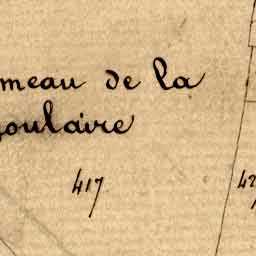 meau de la
oulaire
417
42